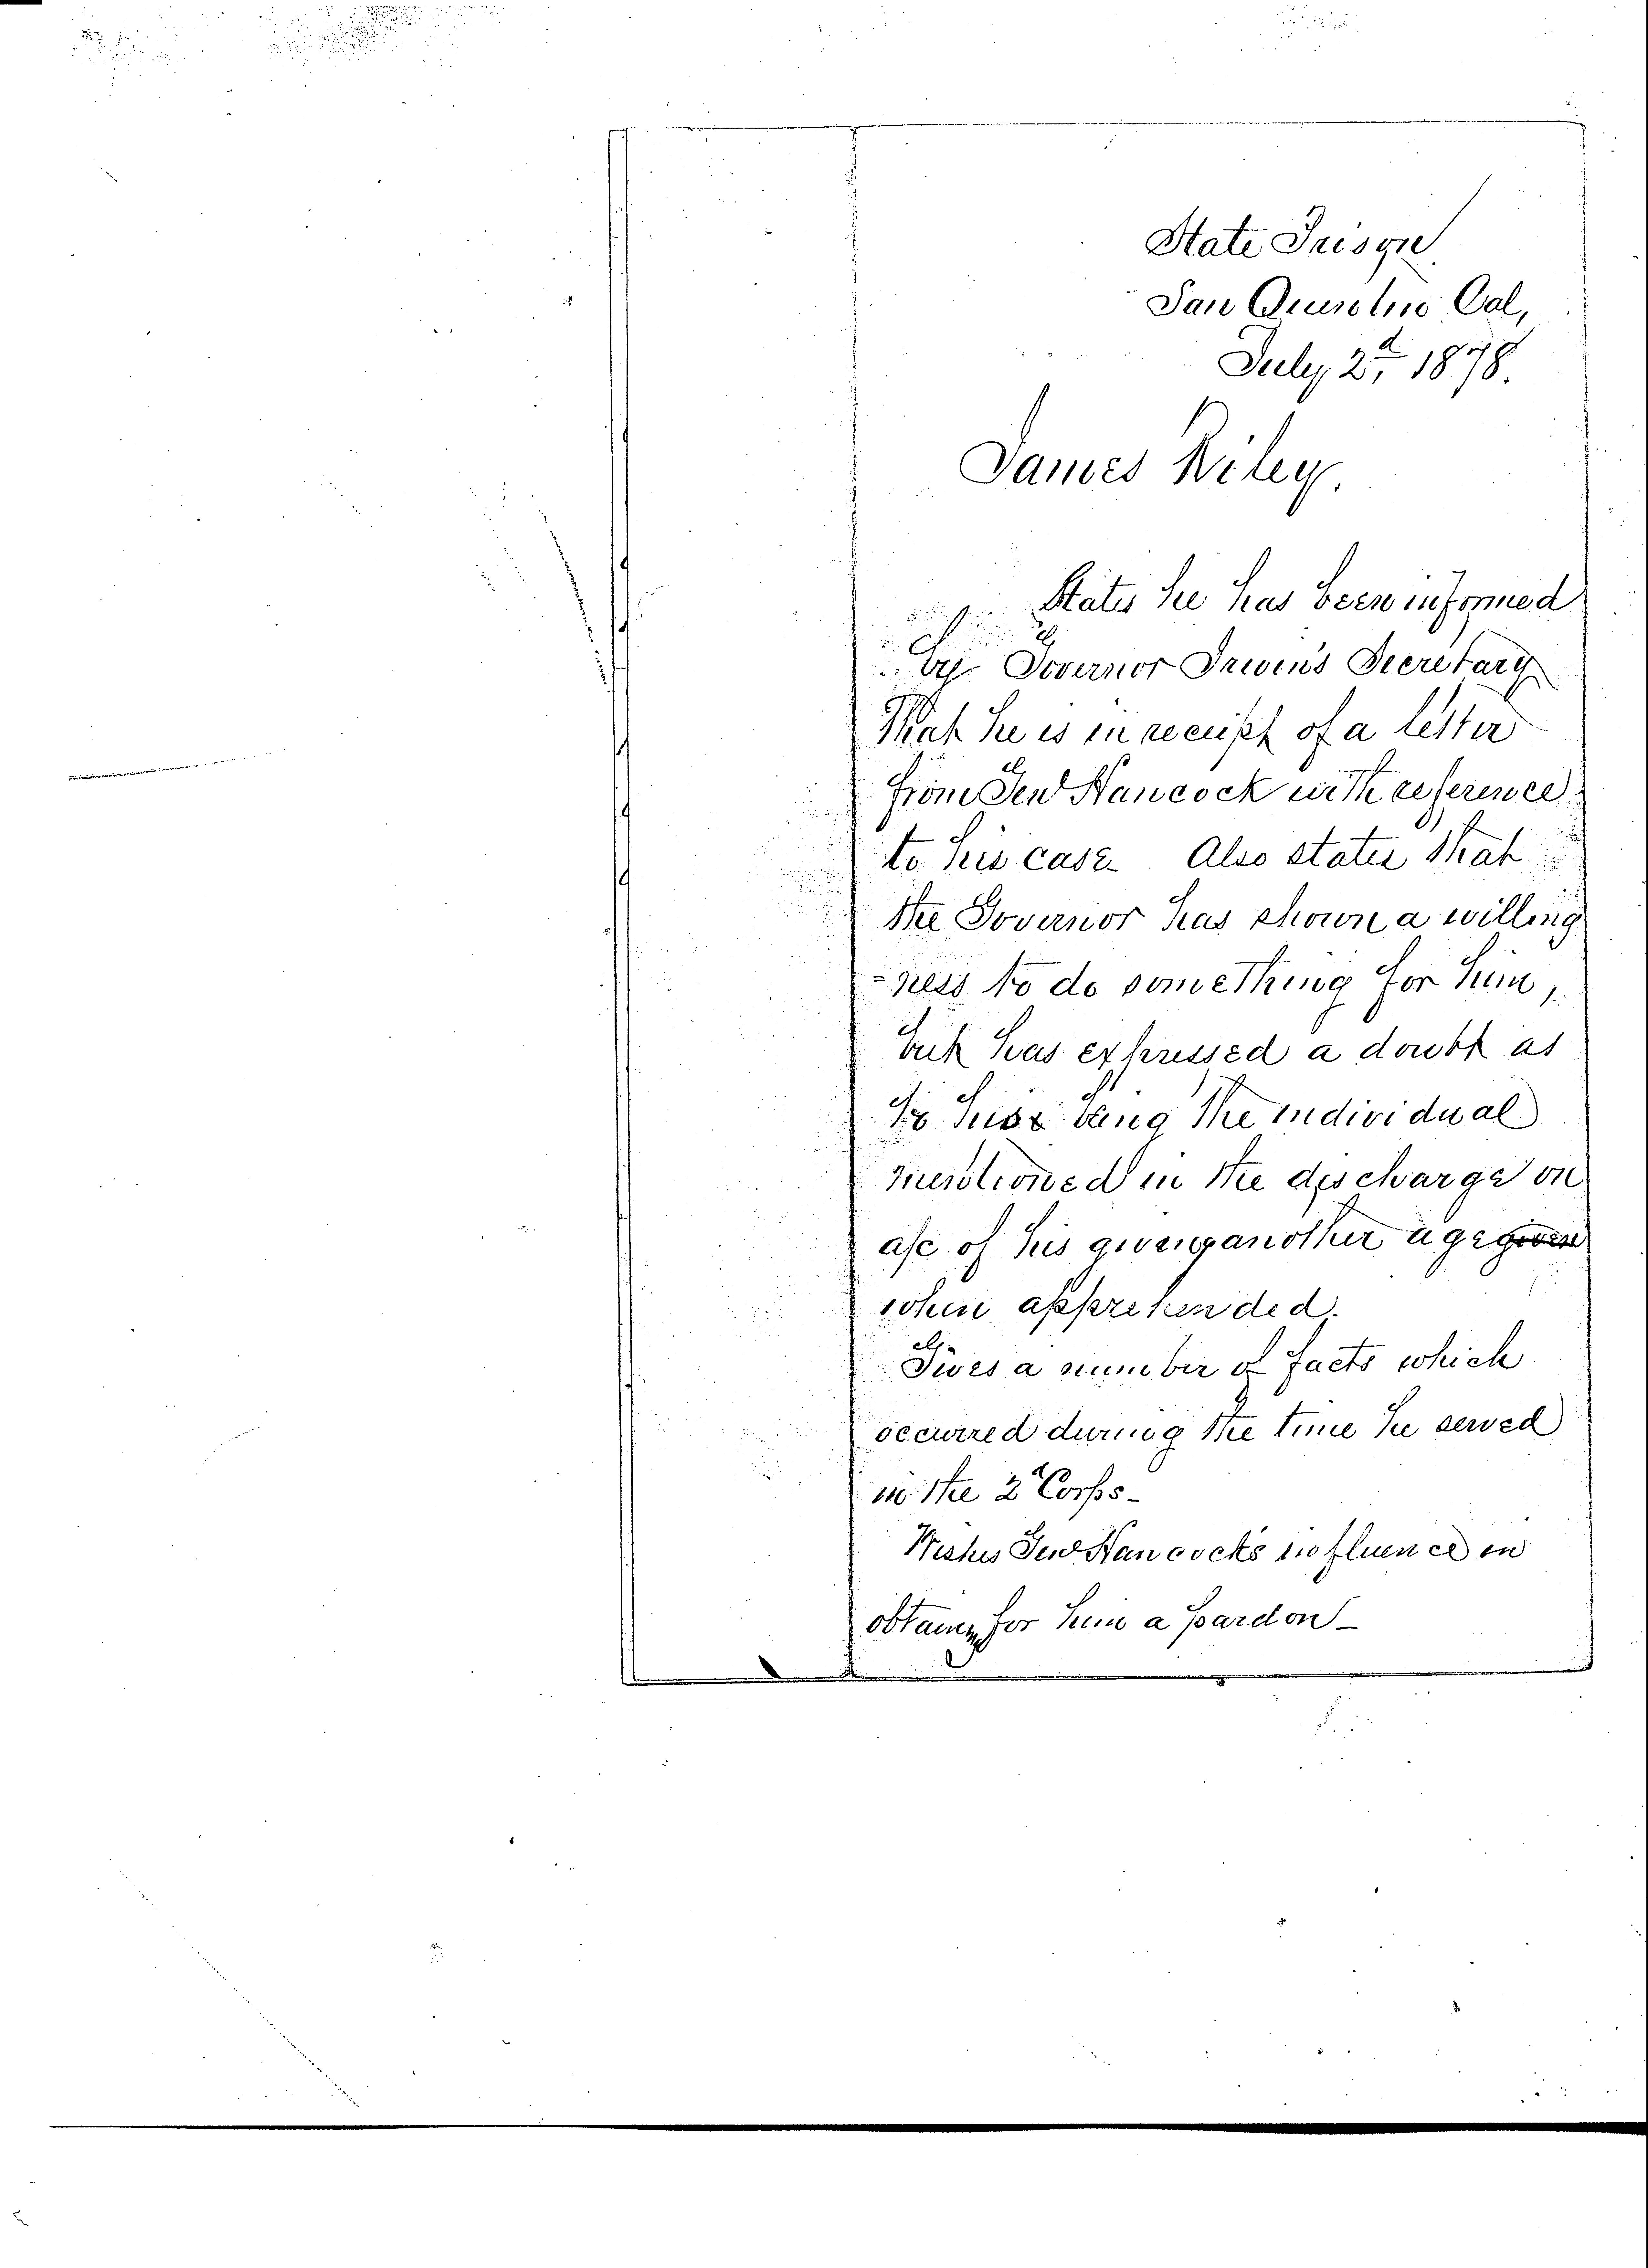 State Prison
San Quentin Cal,
July 2d, 1878.
James Riley.
States he has been informed
by Governor Irwin's Secretary
that he is in receipt of a letter
from Gen Hancock with reference
to his case. Also states that
the Governor has shown a willing
-ness to do something for him,
but has expressed a doubt as
to his being the individual
mentioned in the discharge on
a/c of his giving another age given
when apprehended.
Gives a number of facts which
occurred during the time he served
in the 2d Corps -
Wishes Gen Hancock's influence in
obtaing for him a pardon -